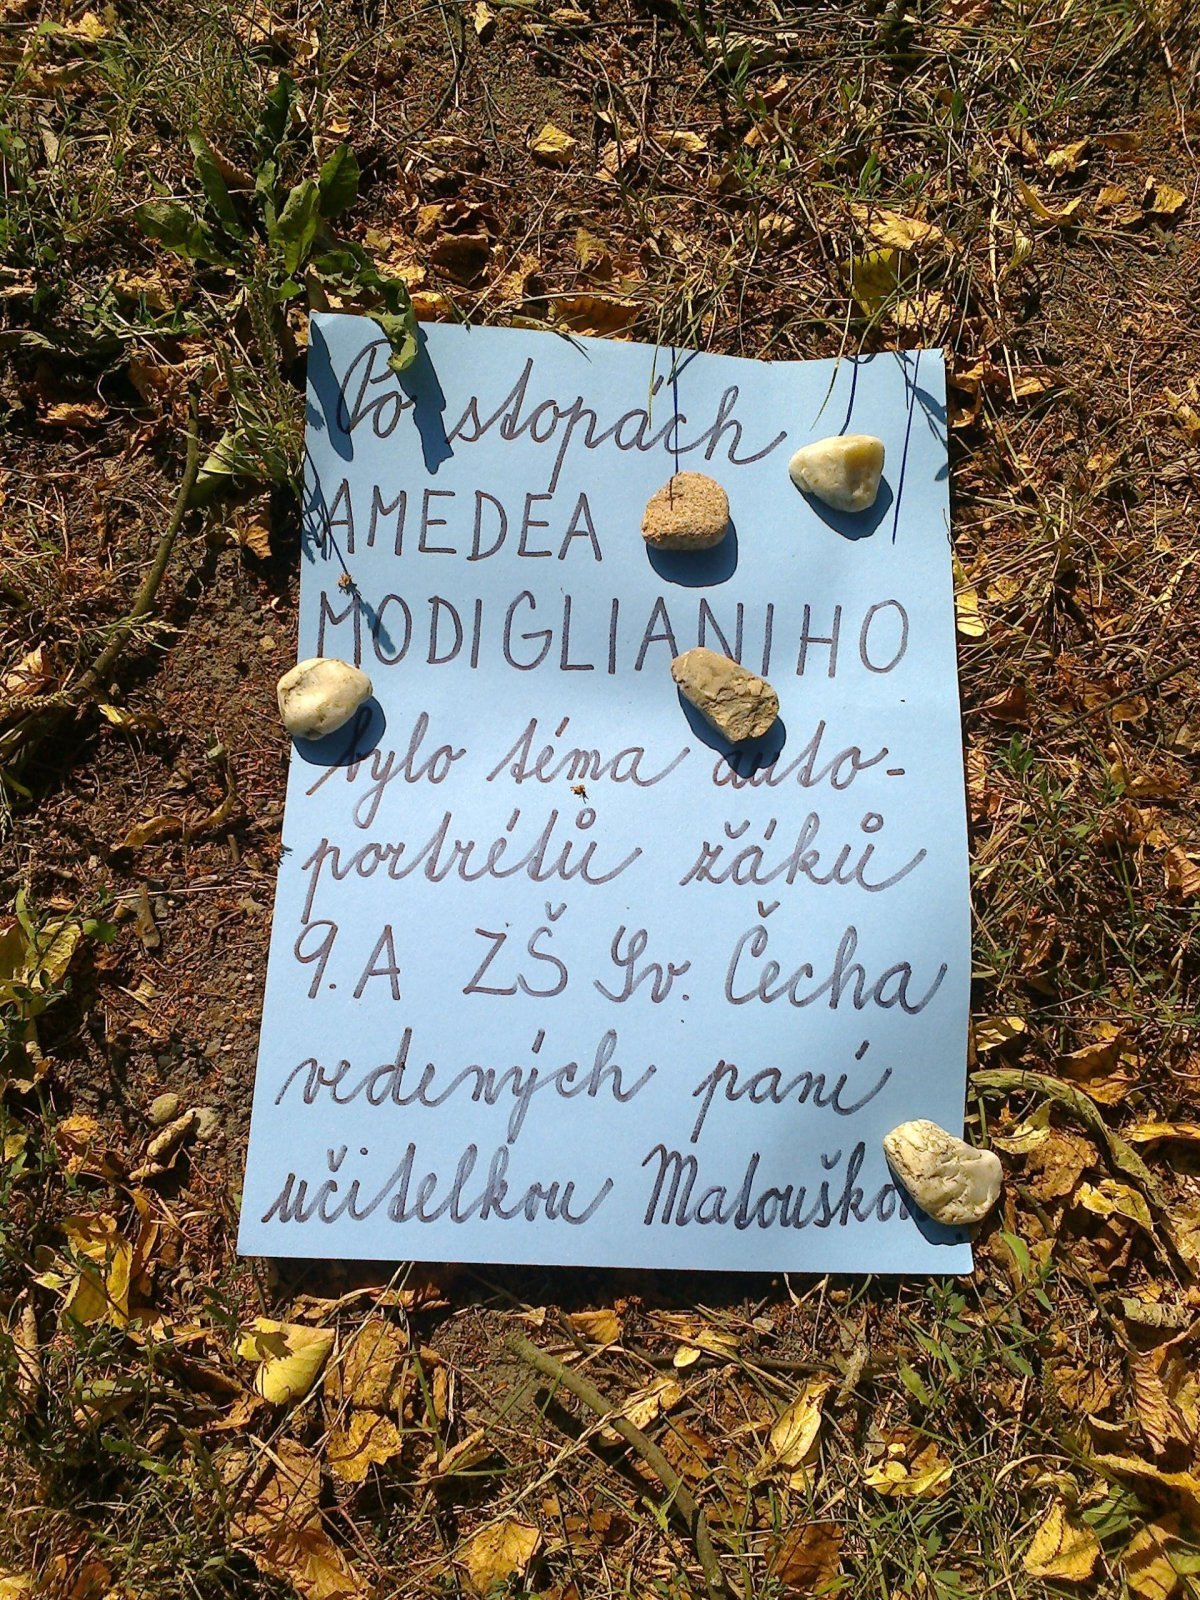 Po stopách
AMEDEA
MODIGLIANIHO
bylo téma auto-
portrétů žáků
9. A ZŠ Sv. Čecha
vedených paní
učitelkou